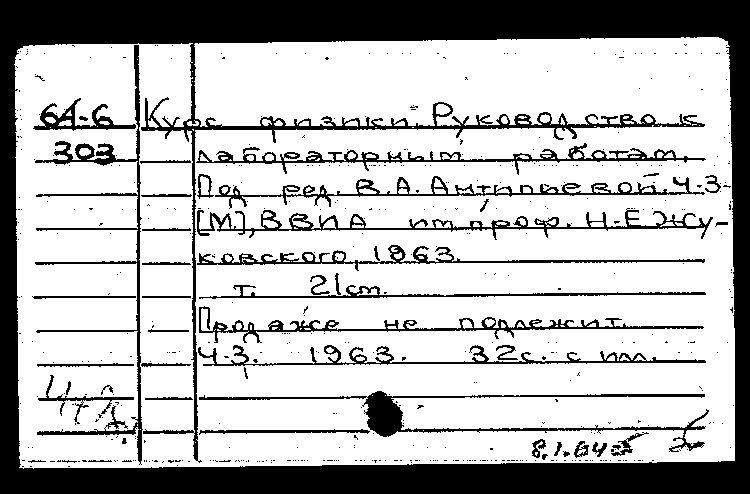 64-6 Курс физики. Руководство к
303 лабораторным работам.
Под ред. В.А. Антипьевой. Ч-3-
[М.], ВВИА им. проф. Н.Е Жу-
ковского, 1963.
т. 21 см.
Продаже не подлежит.
Ч-3. 1963. 32с. с илл.
8.1.64